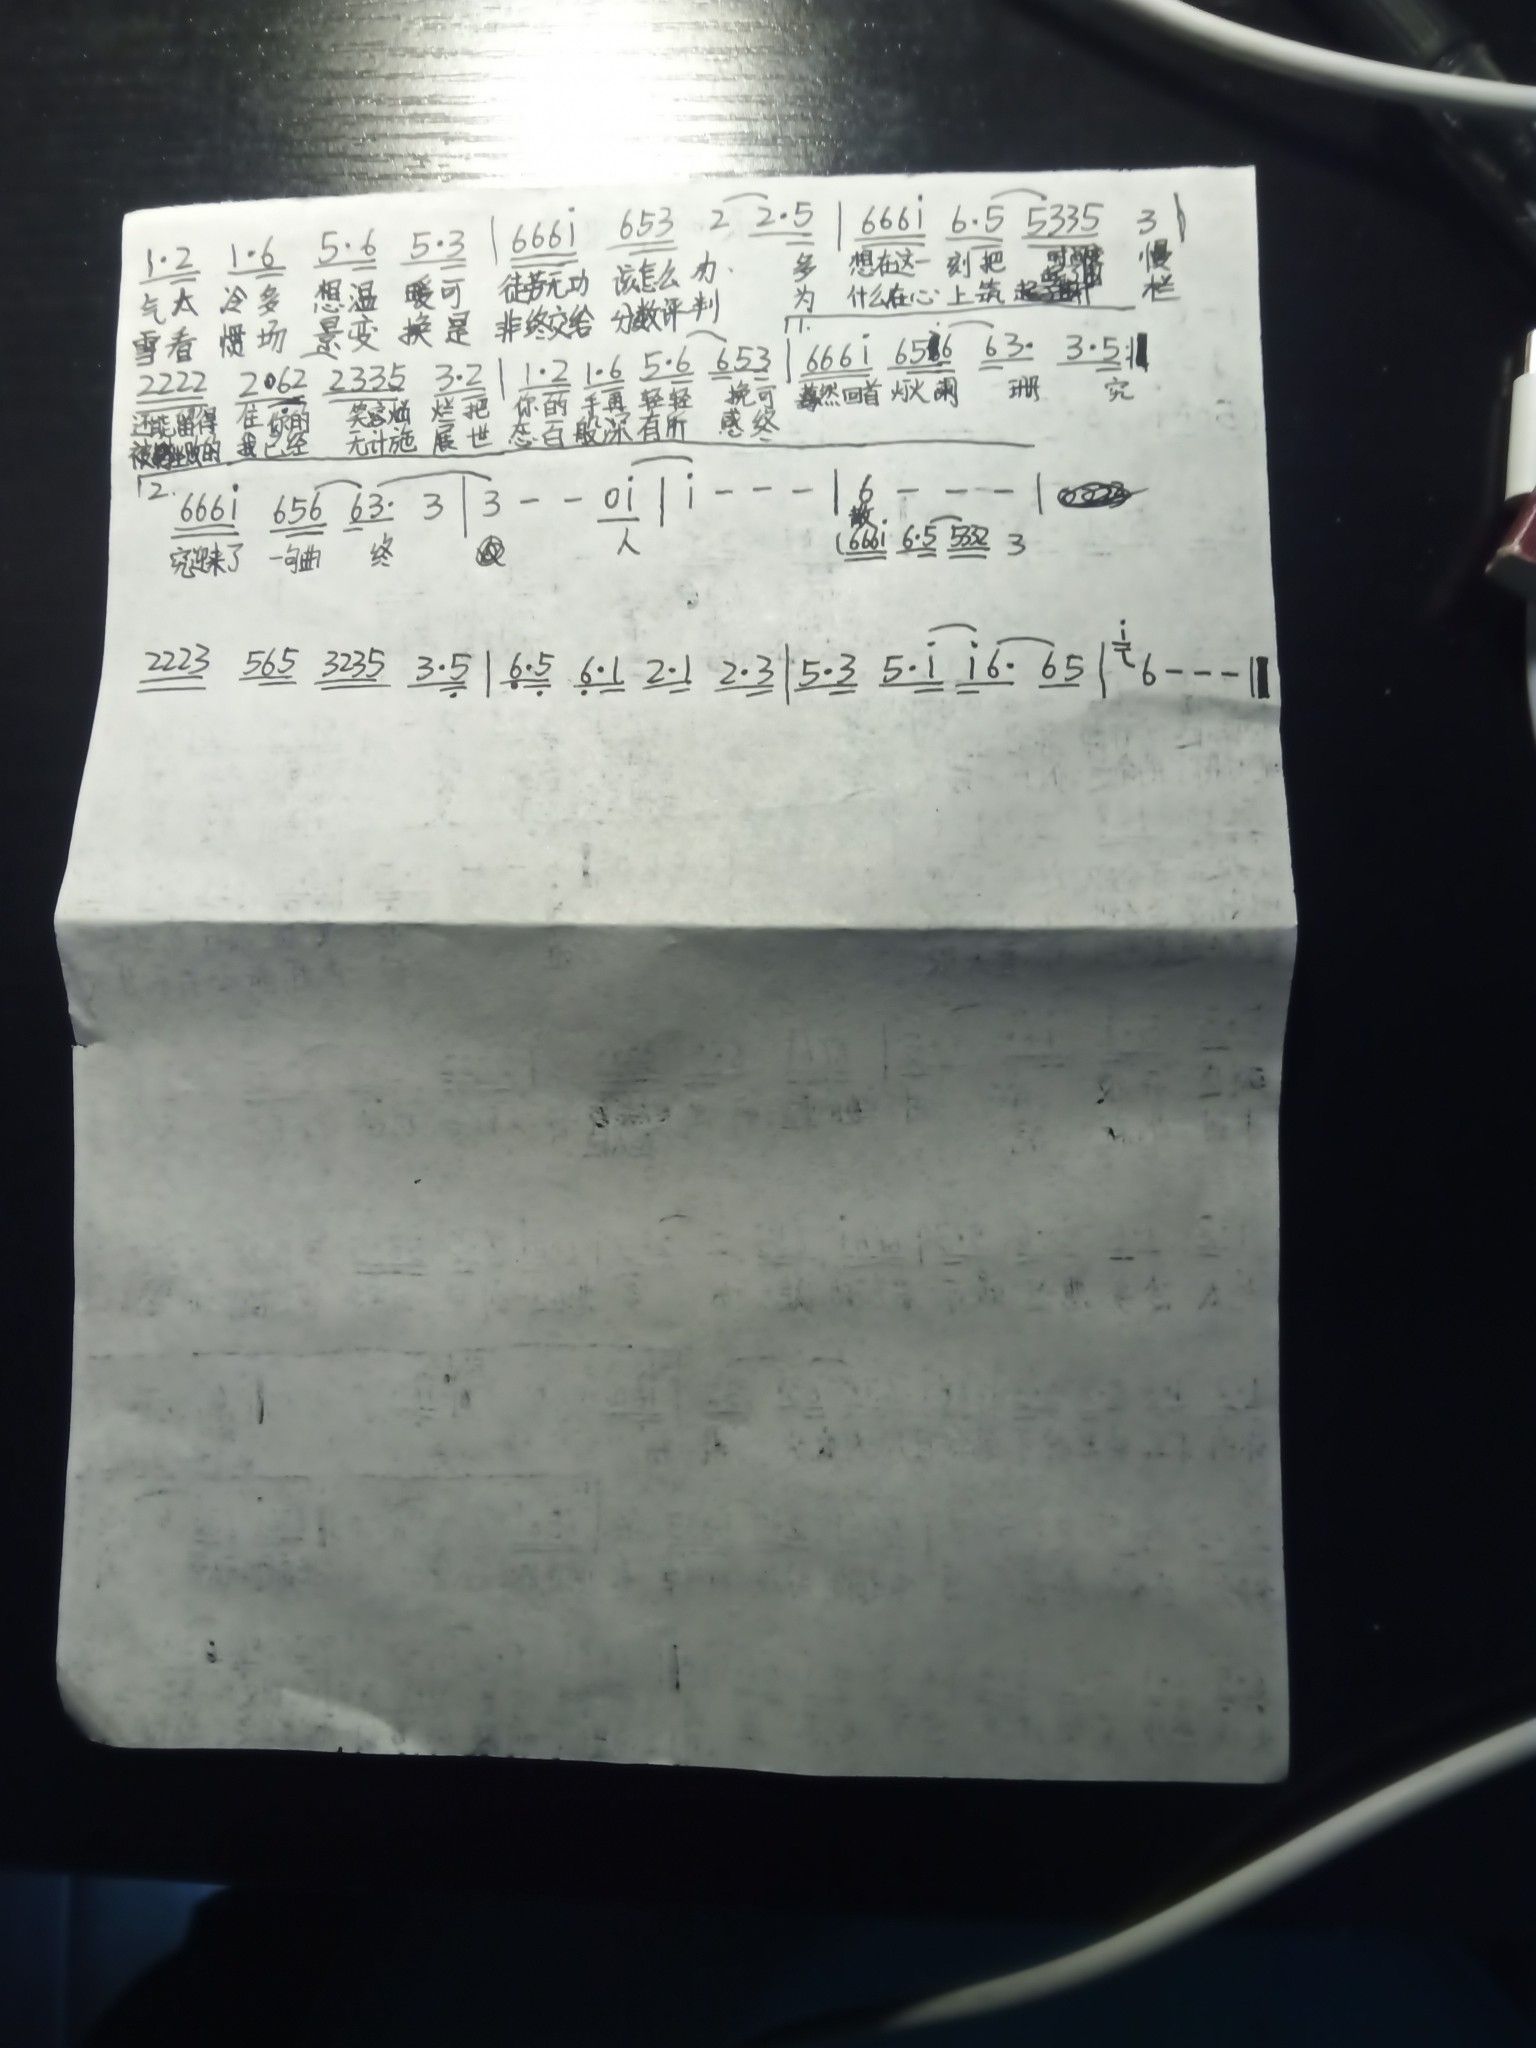 1·2 1·6 5·6 5·3 | 666i 653 2 2·5 | 666i 6·5 5335 3 |
气太 冷多 想温 暖可 徒劳无功 该怎么办 多 想在这一 刻把 慢
雪看 惯场 景变 换是 非终交给 分数评判 为 什么在心 上筑 栏
1.
2222 2·62 2335 3·2 | 1·2 1·6 5·6 653 | 666i 656 63· 3·5 :|
还能留得 住你的 笑容灿 烂把 你的 手再 轻轻 挽可 蓦然回首 灯火阑 珊 究
的 我已经 无计施 展世 态百 般深 有所 感终
2.
666i 656 63· 3 | 3 - - 0i | i - - - | 6 - - - |
究迎来了 一句曲 终 人 散
(666i 6·5 5332 3
2223 565 3235 3·5 | 6·5 6·1 2·1 2·3 | 5·3 5·i i6· 65 | i 6 - - - ||